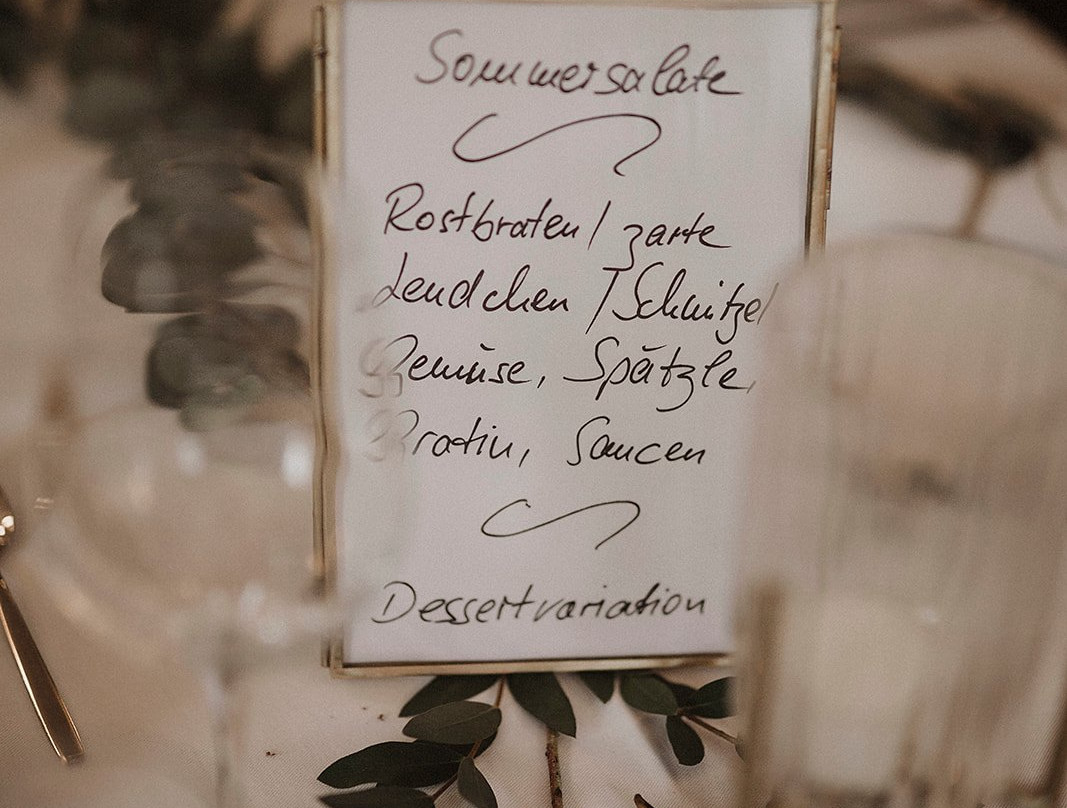 Sommersalate
Rostbraten / zarte
Lendchen / Schnitzel
Gemüse, Spätzle,
Gratin, Saucen
Dessertvariation